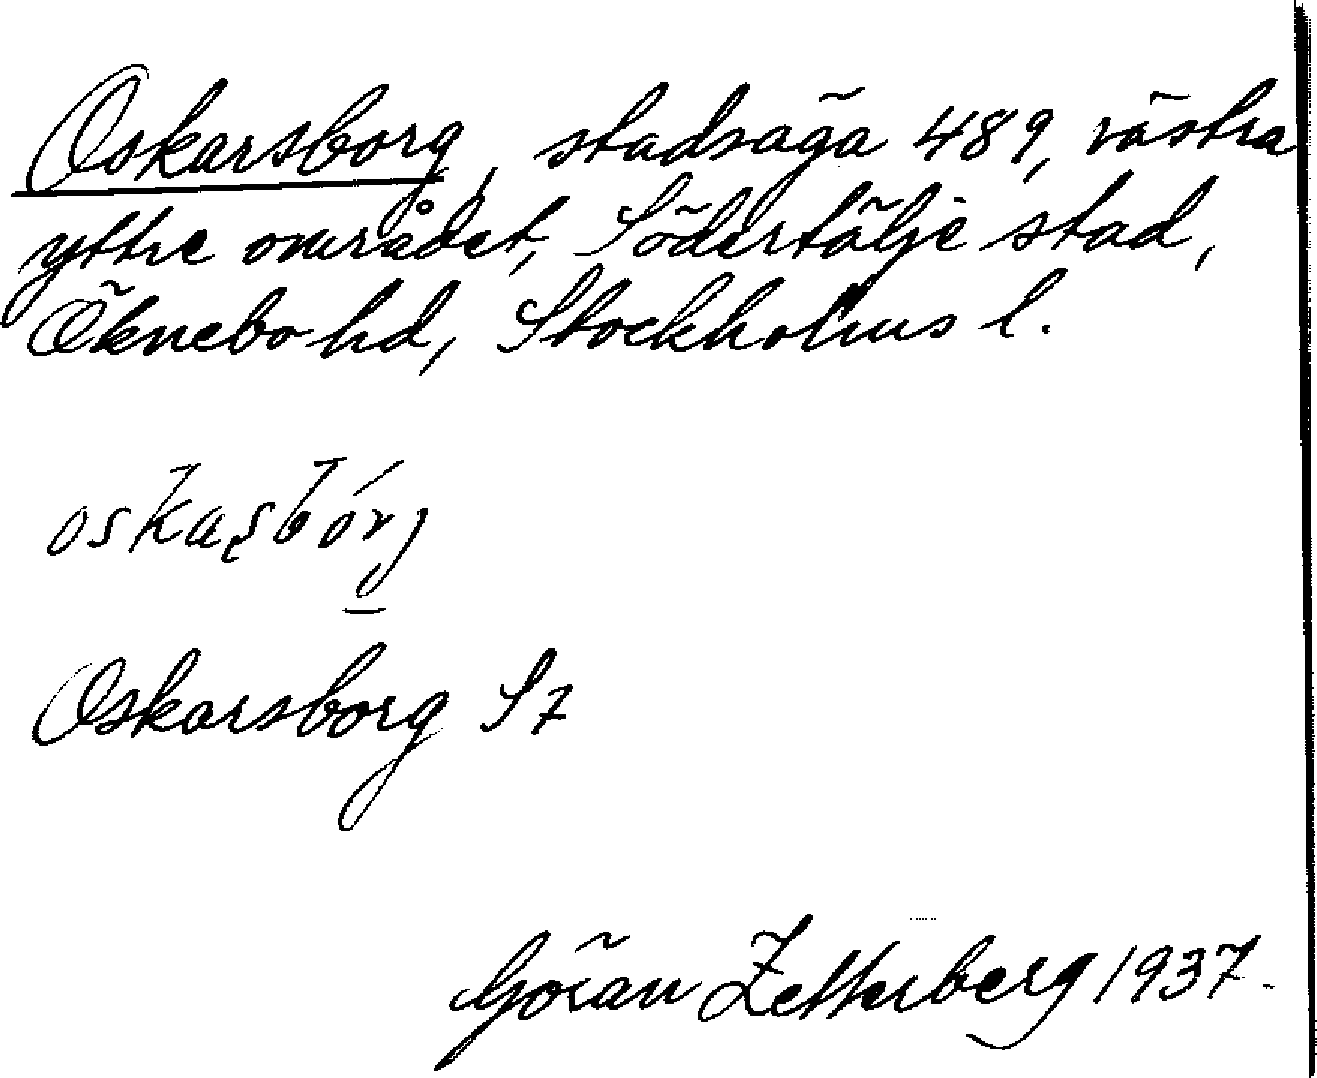 Oskarsborg, stadsäga 489, västra
yttre området, Södertälje stad,
Öknebo hd, Stockholms l.
oskaʂbórj
Oskarsborg S7
Göran Zetterberg 1937.